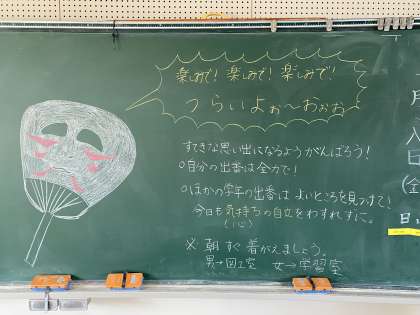 楽しみで! 楽しみで! 楽しみで!
つらいよぉ〜おぉぉ
すてきな思い出になるようがんばろう!
○自分の出番は全力で!
○ほかの学年の出番は よいところを見つけて!
今日も気持ちの自立をわすれずに。
(心)
※ 朝 すぐ 着がえましょう。
男→図工室 女→学習室
月
日
(金
日